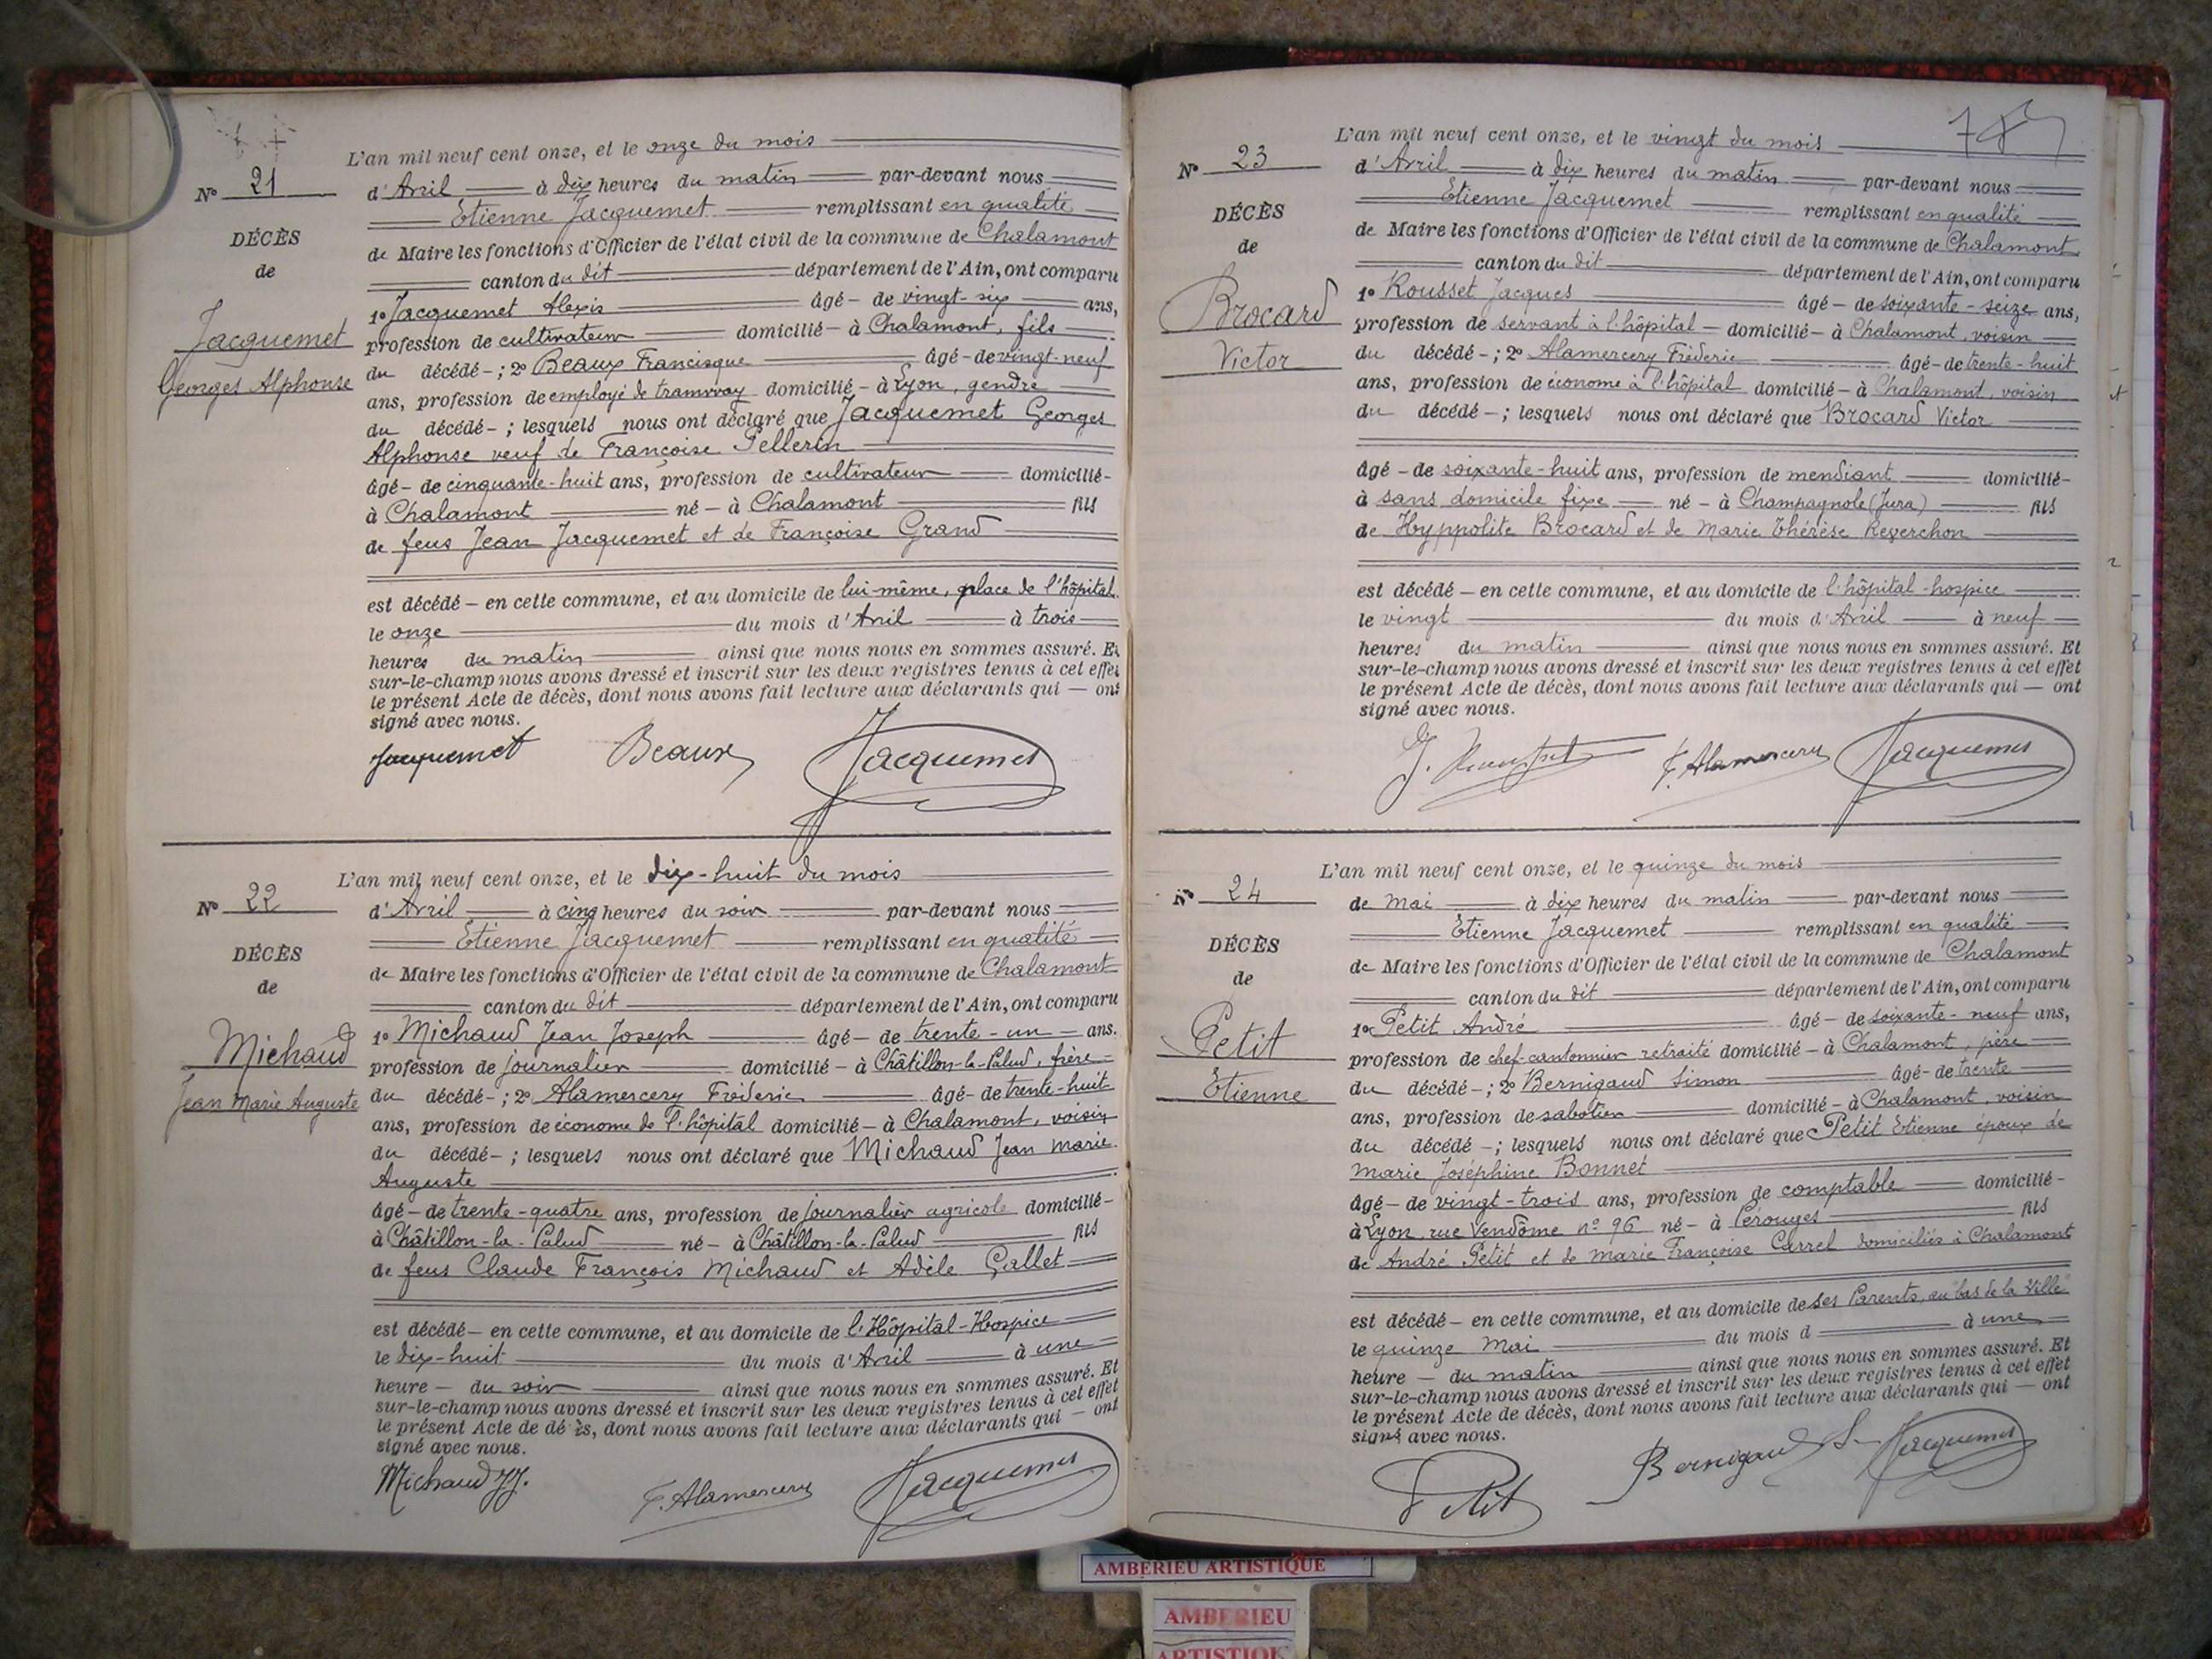 L'an mil neuf cent onze, et le onze du mois
N° 21
d'Avril à dix heures du matin par-devant nous
Etienne Jacquemet remplissant en qualité
DÉCÈS
de Maire les fonctions d'Officier de l'état civil de la commune de Chalamont
de
canton du dit département de l'Ain, ont comparu
1° Jacquemet Alexis âgé - de vingt-six ans,
Jacquemet
profession de cultivateur domicilié - à Chalamont, fils
Georges Alphonse
du décédé - ; 2° Beaux Francisque âgé - de vingt-neuf
ans, profession de employé de tramway domicilié - à Lyon, gendre
du décédé - ; lesquels nous ont déclaré que Jacquemet Georges
Alphonse veuf de Françoise Pellerin
âgé - de cinquante-huit ans, profession de cultivateur domicilié -
à Chalamont né - à Chalamont fils
de feus Jean Jacquemet et de Françoise Grand
est décédé - en cette commune, et au domicile de lui-même, place de l'hôpital
le onze du mois d'Avril à trois
heures du matin ainsi que nous nous en sommes assuré. Et
sur-le-champ nous avons dressé et inscrit sur les deux registres tenus à cet effet
le présent Acte de décès, dont nous avons fait lecture aux déclarants qui — ont
signé avec nous.
Jacquemet Beaux Jacquemet
L'an mil neuf cent onze, et le dix-huit du mois
N° 22
d'Avril à cinq heures du soir par-devant nous
Etienne Jacquemet remplissant en qualité
DÉCÈS
de Maire les fonctions d'Officier de l'état civil de la commune de Chalamont
de
canton du dit département de l'Ain, ont comparu
1° Michaud Jean Joseph âgé - de trente-un ans.
Michaud
profession de journalier domicilié - à Châtillon-la-Palud, frère
Jean Marie Auguste
du décédé - ; 2° Alamercery Fréderic âgé - de trente-huit
ans, profession de économe de l'hôpital domicilié - à Chalamont, voisin
du décédé - ; lesquels nous ont déclaré que Michaud Jean Marie
Auguste
âgé - de trente-quatre ans, profession de journalier agricole domicilié -
à Châtillon-la-Palud né - à Châtillon-la-Palud fils
de feus Claude François Michaud et Adèle Gallet
est décédé - en cette commune, et au domicile de l'Hôpital-Hospice
le dix-huit du mois d'Avril à une
heure - du soir ainsi que nous nous en sommes assuré. Et
sur-le-champ nous avons dressé et inscrit sur les deux registres tenus à cet effet
le présent Acte de décès, dont nous avons fait lecture aux déclarants qui — ont
signé avec nous.
Michaud JJ. F. Alamercery Jacquemet
L'an mil neuf cent onze, et le vingt du mois
N° 23
d'Avril à dix heures du matin par-devant nous
Etienne Jacquemet remplissant en qualité
DÉCÈS
de Maire les fonctions d'Officier de l'état civil de la commune de Chalamont
de
canton du dit département de l'Ain, ont comparu
1° Rousset Jacques âgé - de soixante-seize ans,
Brocard
profession de servant à l'hôpital domicilié - à Chalamont, voisin
Victor
du décédé - ; 2° Alamercery Fréderic âgé - de trente-huit
ans, profession de économe à l'hôpital domicilié - à Chalamont, voisin
du décédé - ; lesquels nous ont déclaré que Brocard Victor
âgé - de soixante-huit ans, profession de mendiant domicilié -
à sans domicile fixe né - à Champagnole (Jura) fils
de Hyppolite Brocard et de Marie Thérèse Reverchon
est décédé - en cette commune, et au domicile de l'hôpital-hospice
le vingt du mois d'Avril à neuf
heures du matin ainsi que nous nous en sommes assuré. Et
sur-le-champ nous avons dressé et inscrit sur les deux registres tenus à cet effet
le présent Acte de décès, dont nous avons fait lecture aux déclarants qui — ont
signé avec nous.
F. Alamercery Jacquemet
L'an mil neuf cent onze, et le quinze du mois
N° 24
de Mai à dix heures du matin par-devant nous
Etienne Jacquemet remplissant en qualité
DÉCÈS
de Maire les fonctions d'Officier de l'état civil de la commune de Chalamont
de
canton du dit département de l'Ain, ont comparu
1° Petit André âgé - de soixante-neuf ans,
Petit
profession de chef-cantonnier retraité domicilié - à Chalamont, père
Etienne
du décédé - ; 2° Bernigaud Simon âgé - de trente
ans, profession de sabotier domicilié - à Chalamont, voisin
du décédé - ; lesquels nous ont déclaré que Petit Etienne époux de
Marie Joséphine Bonnet
âgé - de vingt-trois ans, profession de comptable domicilié -
à Lyon, rue Vendôme n° 96 né - à Pérouges fils
de André Petit et de Marie Françoise Carrel domiciliés à Chalamont
est décédé - en cette commune, et au domicile de ses Parents, au "bas de la Ville"
le quinze Mai du mois d à une
heure - du matin ainsi que nous nous en sommes assuré. Et
sur-le-champ nous avons dressé et inscrit sur les deux registres tenus à cet effet
le présent Acte de décès, dont nous avons fait lecture aux déclarants qui — ont
signé avec nous.
Petit Bernigaud S. Jacquemet
AMBERIEU ARTISTIQUE
AMBERIEU